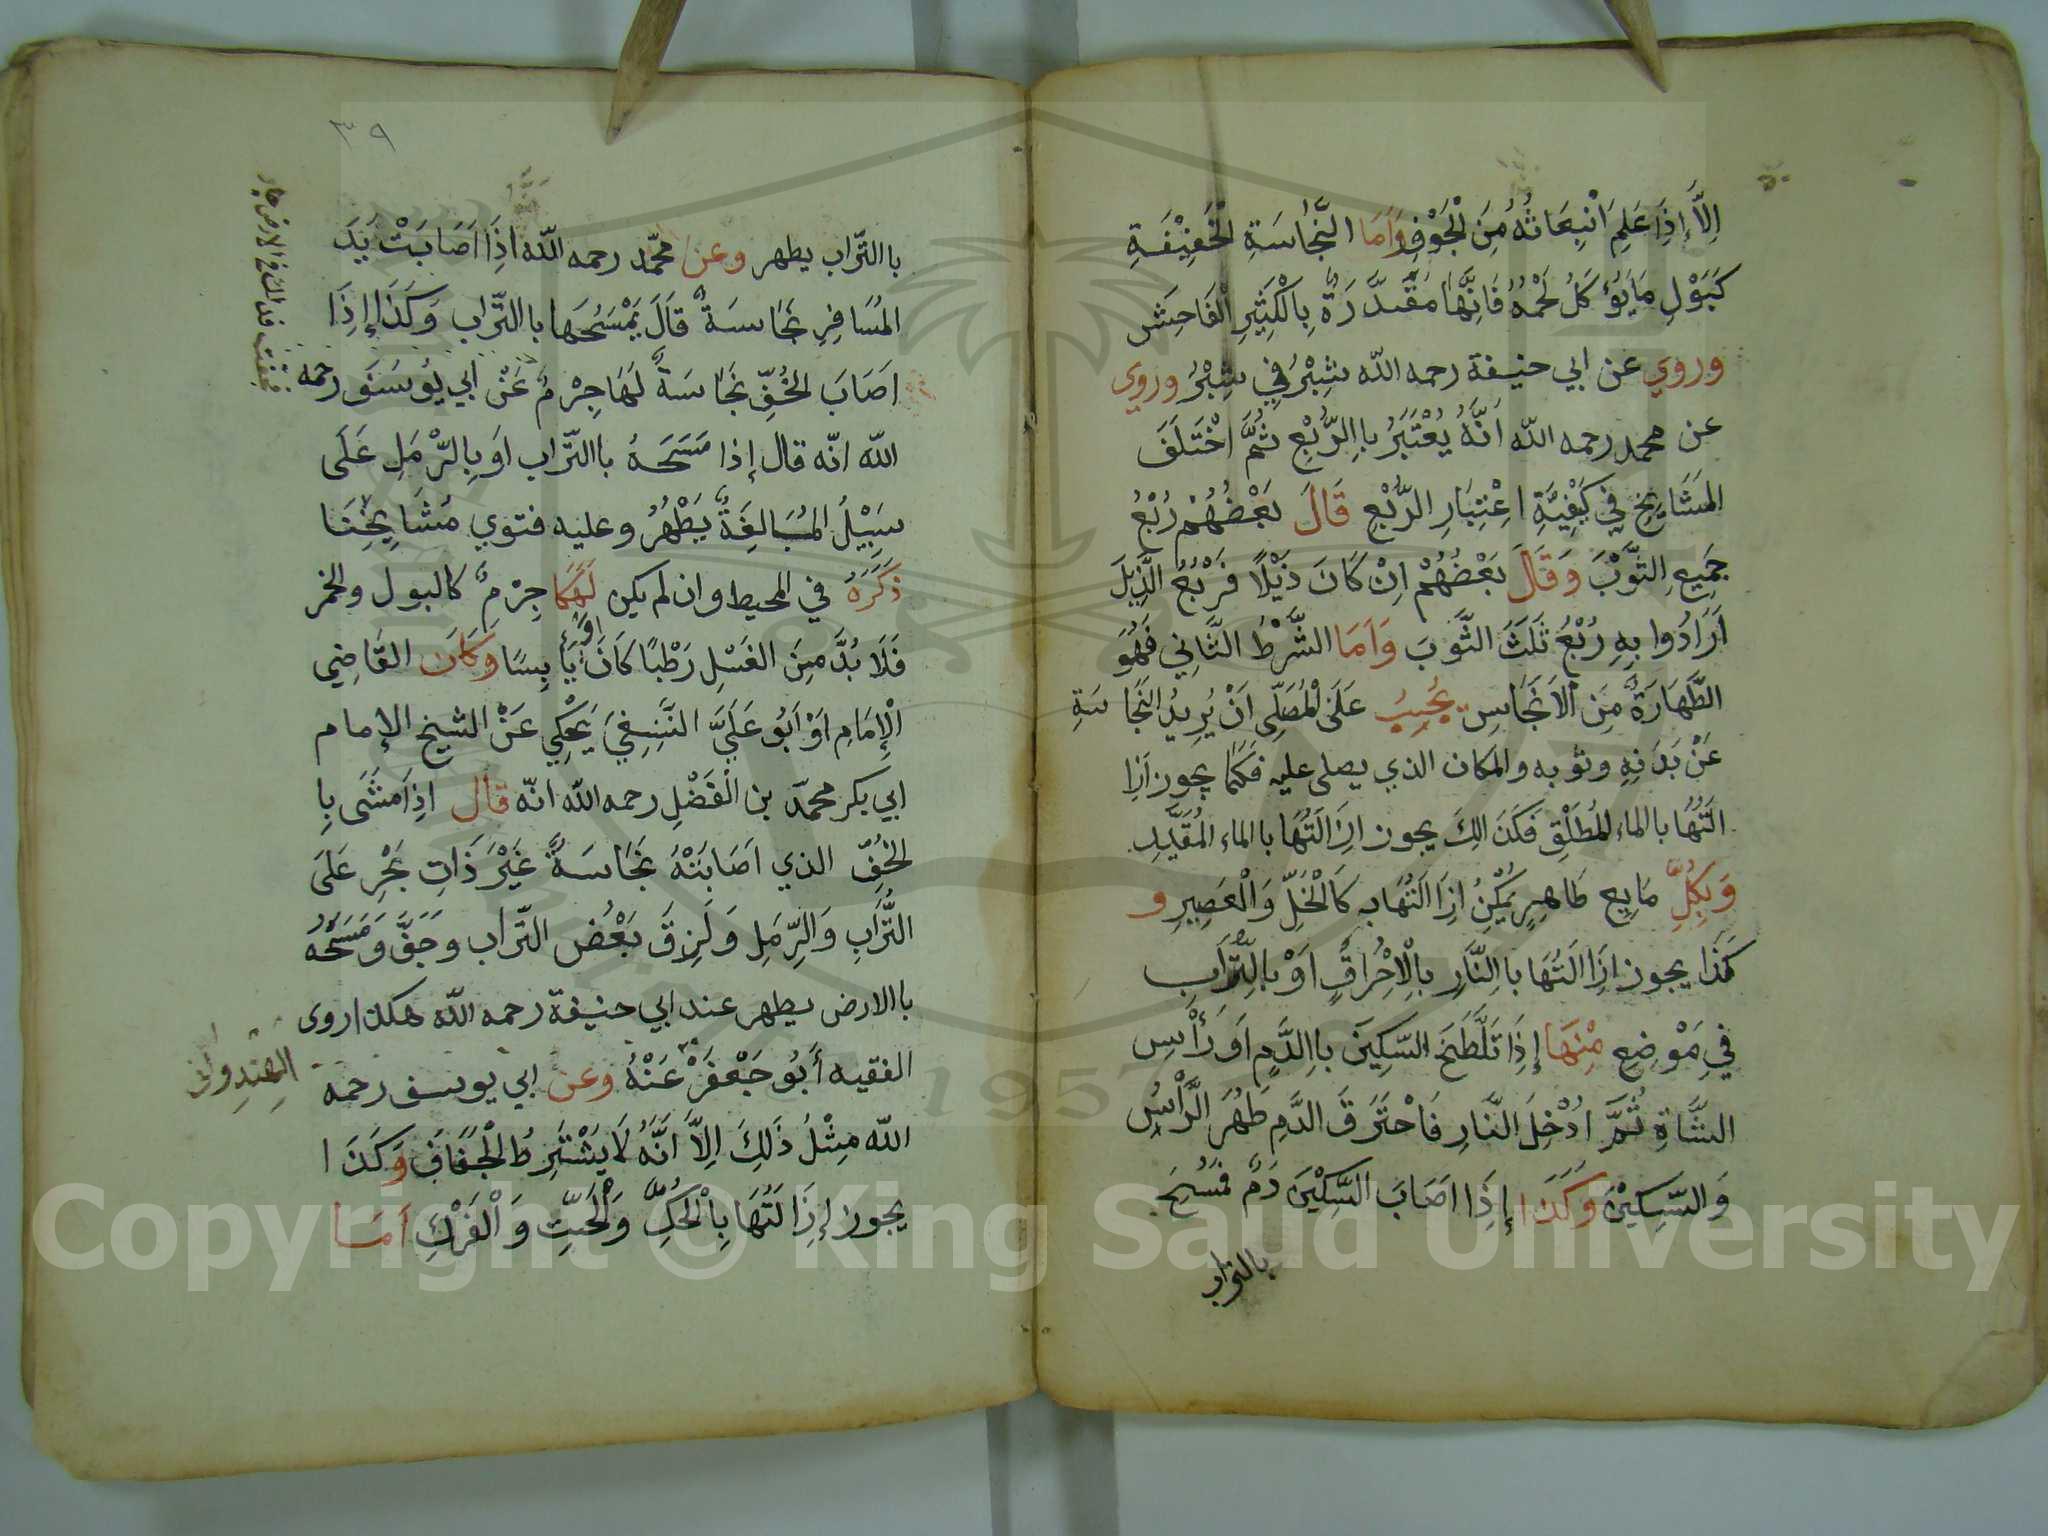 اِلاَّ إِذَا عَلِمَ انْبِعَاثُهُ مِنَ الْجَوْفِ وَاَمَا النَّجَاسَةِ الْخَفِيْفَةِ
كَبَوْلِ مَا يُؤْكَلُ لَحْمُهُ فَاِنَّهَا مُقَدَّرَةٌ بِالْكَثِيْرِ الْفَاحِشِ
وروي عن ابي حنيفة رحمه الله شِبْرٌ فِي شِبْرٍ وروي
عن محمد رحمه الله اَنَّهُ يُعْتَبَرُ باِالرُّبُعِ ثُمَّ اخْتَلَفَ
المَشَايِخ فِي كَيْفِيَّةِ اعْتِبَارِ الرُّبْعِ قَالَ بَعْضُهُمْ رُبْعُ
جَمِيعِ الثَّوْبَ وَقَالَ بَعْضُهُمْ اِنْ كَانَ ذَيْلاً فَرُبْعُ الذَّيْلَ
اَرَادُوا بِهِ رُبْعُ ثَلَثَ الثَّوبَ وَاَمَا الشَّرْطُ الثَّانِي فَهُوَ
الطَّهَارَةُ مِنَ الاَنْجَاسِ يُجِبُ عَلَى الْمُصَلِّى اَنْ يُرِيدُ النَجَاسَةِ
عَنْ بَدَنِهِ وثوبه والمكان الذي يصلى عليه فَكَمَا يجوز اَزِا
الَتُهَا باالماء المُطَلْقِ فَكَذَالِكَ يجوز اِزَالَتُهَا باالماء المُقَيَّدِ
وَبِكُلِّ مَايِع طَاهِرٍ يُمْكِنُ اِزَالَتُهَا بِهِ كَالْخَلِّ وَالْعَصِيرِ و
كَذَا يجوز اِزَاالَتُهَا باالنَّارِ بِالْاِحْرَاقِ اَوْ باالتُّرَابِ
فِي مَوْضِعِ مِنْهَا إِذَا تَلَّطَخَ السّكِينَ باِالدَّمِ اَوَ رَأْسِ
الشَّاةِ ثُمَّ اُدْخِلَ النَّارِ فَاحْتَرَقَ الدَّمِ طَهُرَ الرَّأسِ
وَالسِّكِيْنَ وَكَذَا إِذَا اصَابَ السِّكِيْنَ دَمٌ فَمُسِحَ
باالتراب
٣٩
باالتّراب يطهر وعن محمّد رحمه اللّه اذِا اَصَابَتْ يَدَ
المُسَافِرِ نَجَاسَةٌ قَالَ يَمْسَحُهَا باالتّراب وَكَذَا إِذَا
اَصَابَ الخُفِّ نَجَاسَةٌ لَهَا جِرْمٌ عَنْ ابي يُوسَفَ رحمه
اللّه انّه قال إذا مَسَحَهُ باالتّراب اَو بِالرَّمَلِ عَلَى
سَبِيْلُ المُبَالِغَةُ يَطْهُرُ وعليه فتوي مَشَايِخِنَا
ذَكَرَهُ في المحيط وان لم يكن لَهَا جِرْمٌ كالبول والخمر
فَلَا بُدَّ مِنَ الغَسْلِ رَطْبًا كَانَ اَوْ يَابِسًا وَكَانَ القَاضِي
الْاِمَامِ اَوْ اَبُو عَلَيّ النَّسَفِيَ يَحْكِي عَنْ الشيخ الإمام
ابي بكر محمّد بن الفَضْلِ رحمه الله انّه قال اذِا مَشَى بِا
لخُفِّ الذي اَصَابَتْهُ نَجَاسَةٌ غَيْرَ ذَاتِ جِرْمٍ عَلَى
التُّرَابِ وَالرِّمَلِ وَلَزِقَ بَعْضُ التّراب وجَفَّ وَمَسَحَهُ
باالارض يطهر عند ابي حنيفة رحمه اللّه هكذا روى
الفقيه أَبُو جَعْفَرْ عَنْهُ وعن ابي يوسف رحمه
الهِنْدِوَانى
اللّه مِثْلُ ذَلِكَ اِلاَّ اَنَّهُ لاَ يَشْتَرِطُ الْجَفَافَ وَكَذَا
يجوز إِزَالَتُهَا بِالْحَكِّ وَالْحَتِّ وَالْفَرْكِ اَمَا
Copyright © King Saud University
1957